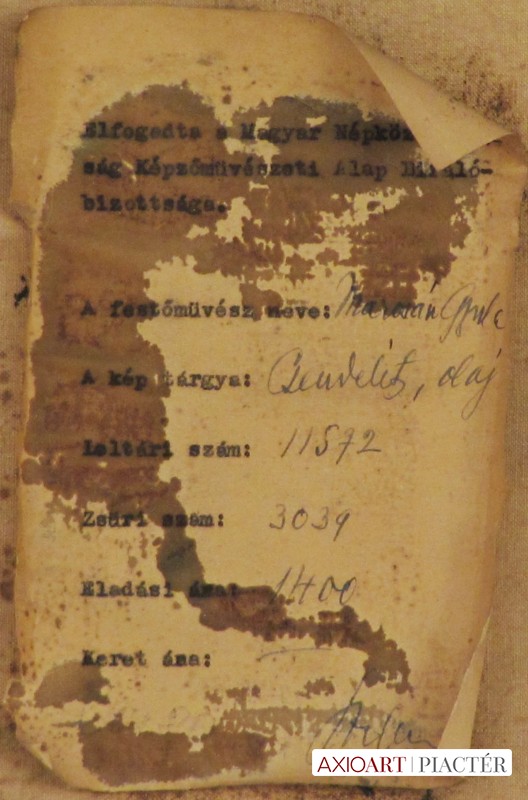 Elfogadta a Magyar Népköz
ság Képzőművészeti Alap Biráló-
bizottsága.
A festőművész neve: Marosán Gyula
A kép tárgya: Csendélet, olaj
Leltári szám: 11572
Zsűri szám: 3039
Eladási ára: 1400
Keret ára: —
AXIOART | PIACTÉR